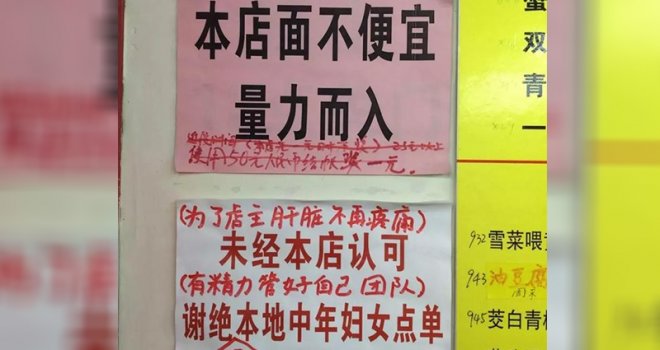 本店面不便宜
量力而入
使用50元人币结帐 一元.
(为了店主肝脏不再疼痛)
未经本店认可
(有精力管好自己 团队)
谢绝本地中年妇女点单
双
青
一
932 雪菜喂
943 油豆腐
945 茭白青